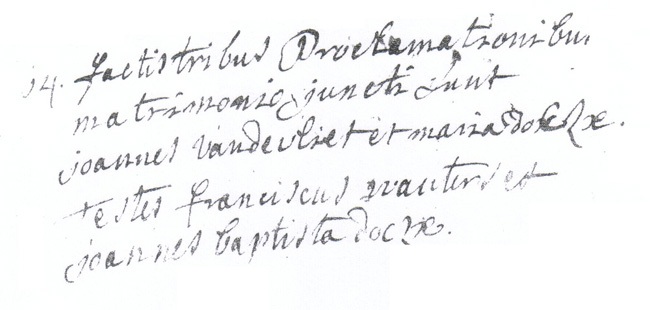 14. factis tribus Proclamationibu.
matrimonio juncti sunt
joannes vandevliet et maria
testes franciscus wauters et
joannes baptista